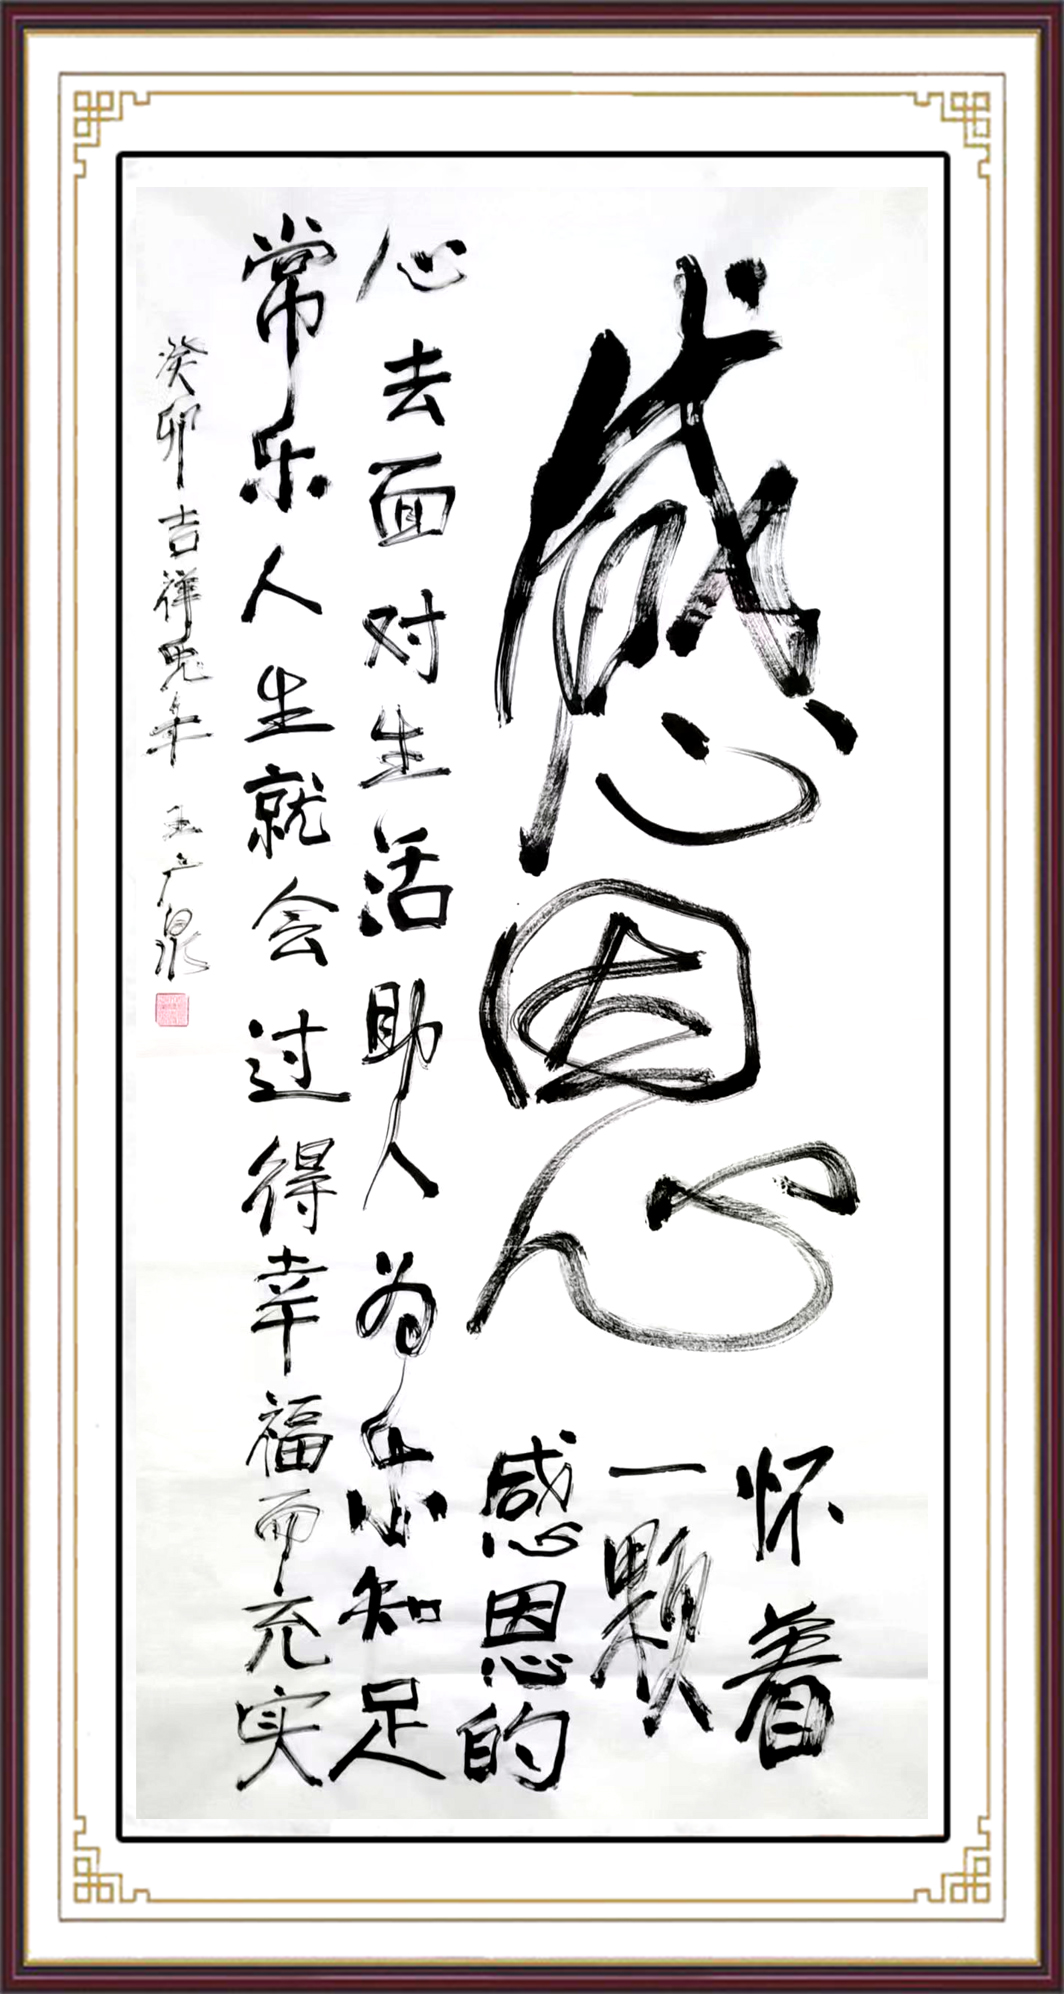 感恩
怀着
一颗
感恩的
心去面对生活助人为乐知足
常乐人生就会过得幸福而充实
癸卯吉祥兔年 王广泉